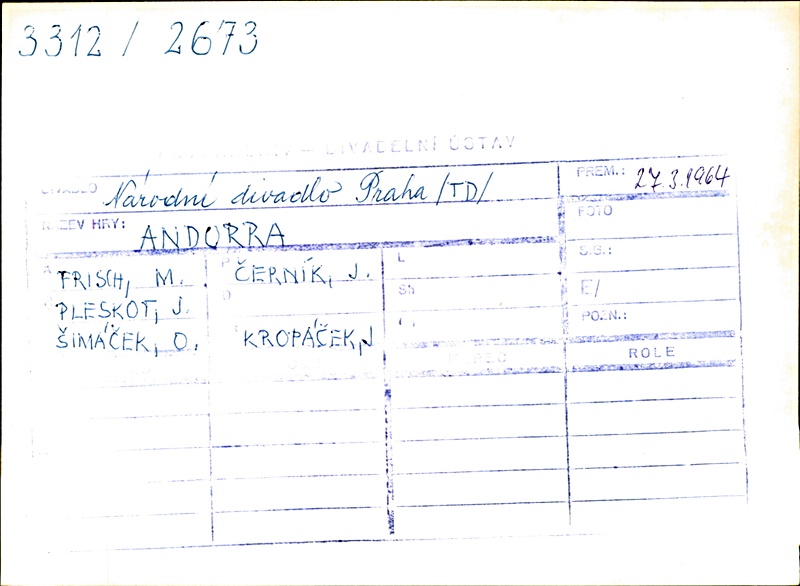 3312 / 2673
DIVADELNÍ ÚSTAV
DIVADLO Národní divadlo Praha /TD/ PREM.: 27.3.1964
NÁZEV HRY: ANDORRA FOTO
FRISCH, M. ČERNÍK, J. L S.G.:
PLESKOT, J. Sh E/
ŠIMÁČEK, O. KROPÁČEK, J POZN.:
HEREC ROLE